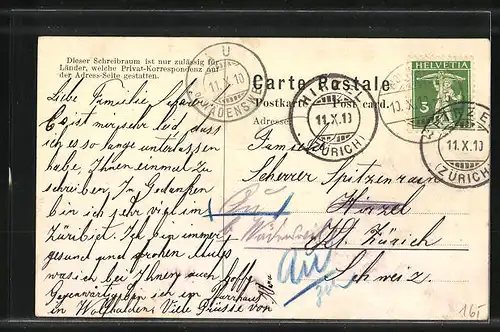 Dieser Schreibraum ist nur zulässig für
Länder, welche Privat-Korrespondenz auf
der Adress-Seite gestatten.
AU
11.X.10
(WÄDENSW
Carte Postale
Postkarte Post card.
Adresse
HIRZEL
11.X.10
(ZÜRICH)
10.X
HELVETIA
5
HIRZEL
11.X.10
(ZÜRICH)
Liebe Familie
Es ist mir sehr leid, dass
ich es so lange unterlassen
habe, Ihnen einmal zu
schreiben. In Gedanken
bin ich sehr viel im
Züribiet. Ich bin immer
gesund und frohen Mutes
was ich bei Ihnen auch hoffe
Gegenwärtig bin ich im Pfarrhaus
in Wolfhalden. Viele Grüsse von
Familie
Scherrer Spitzenrain
Hirzel
Au
Kt. Zürich
Au
Schweiz.
16,-